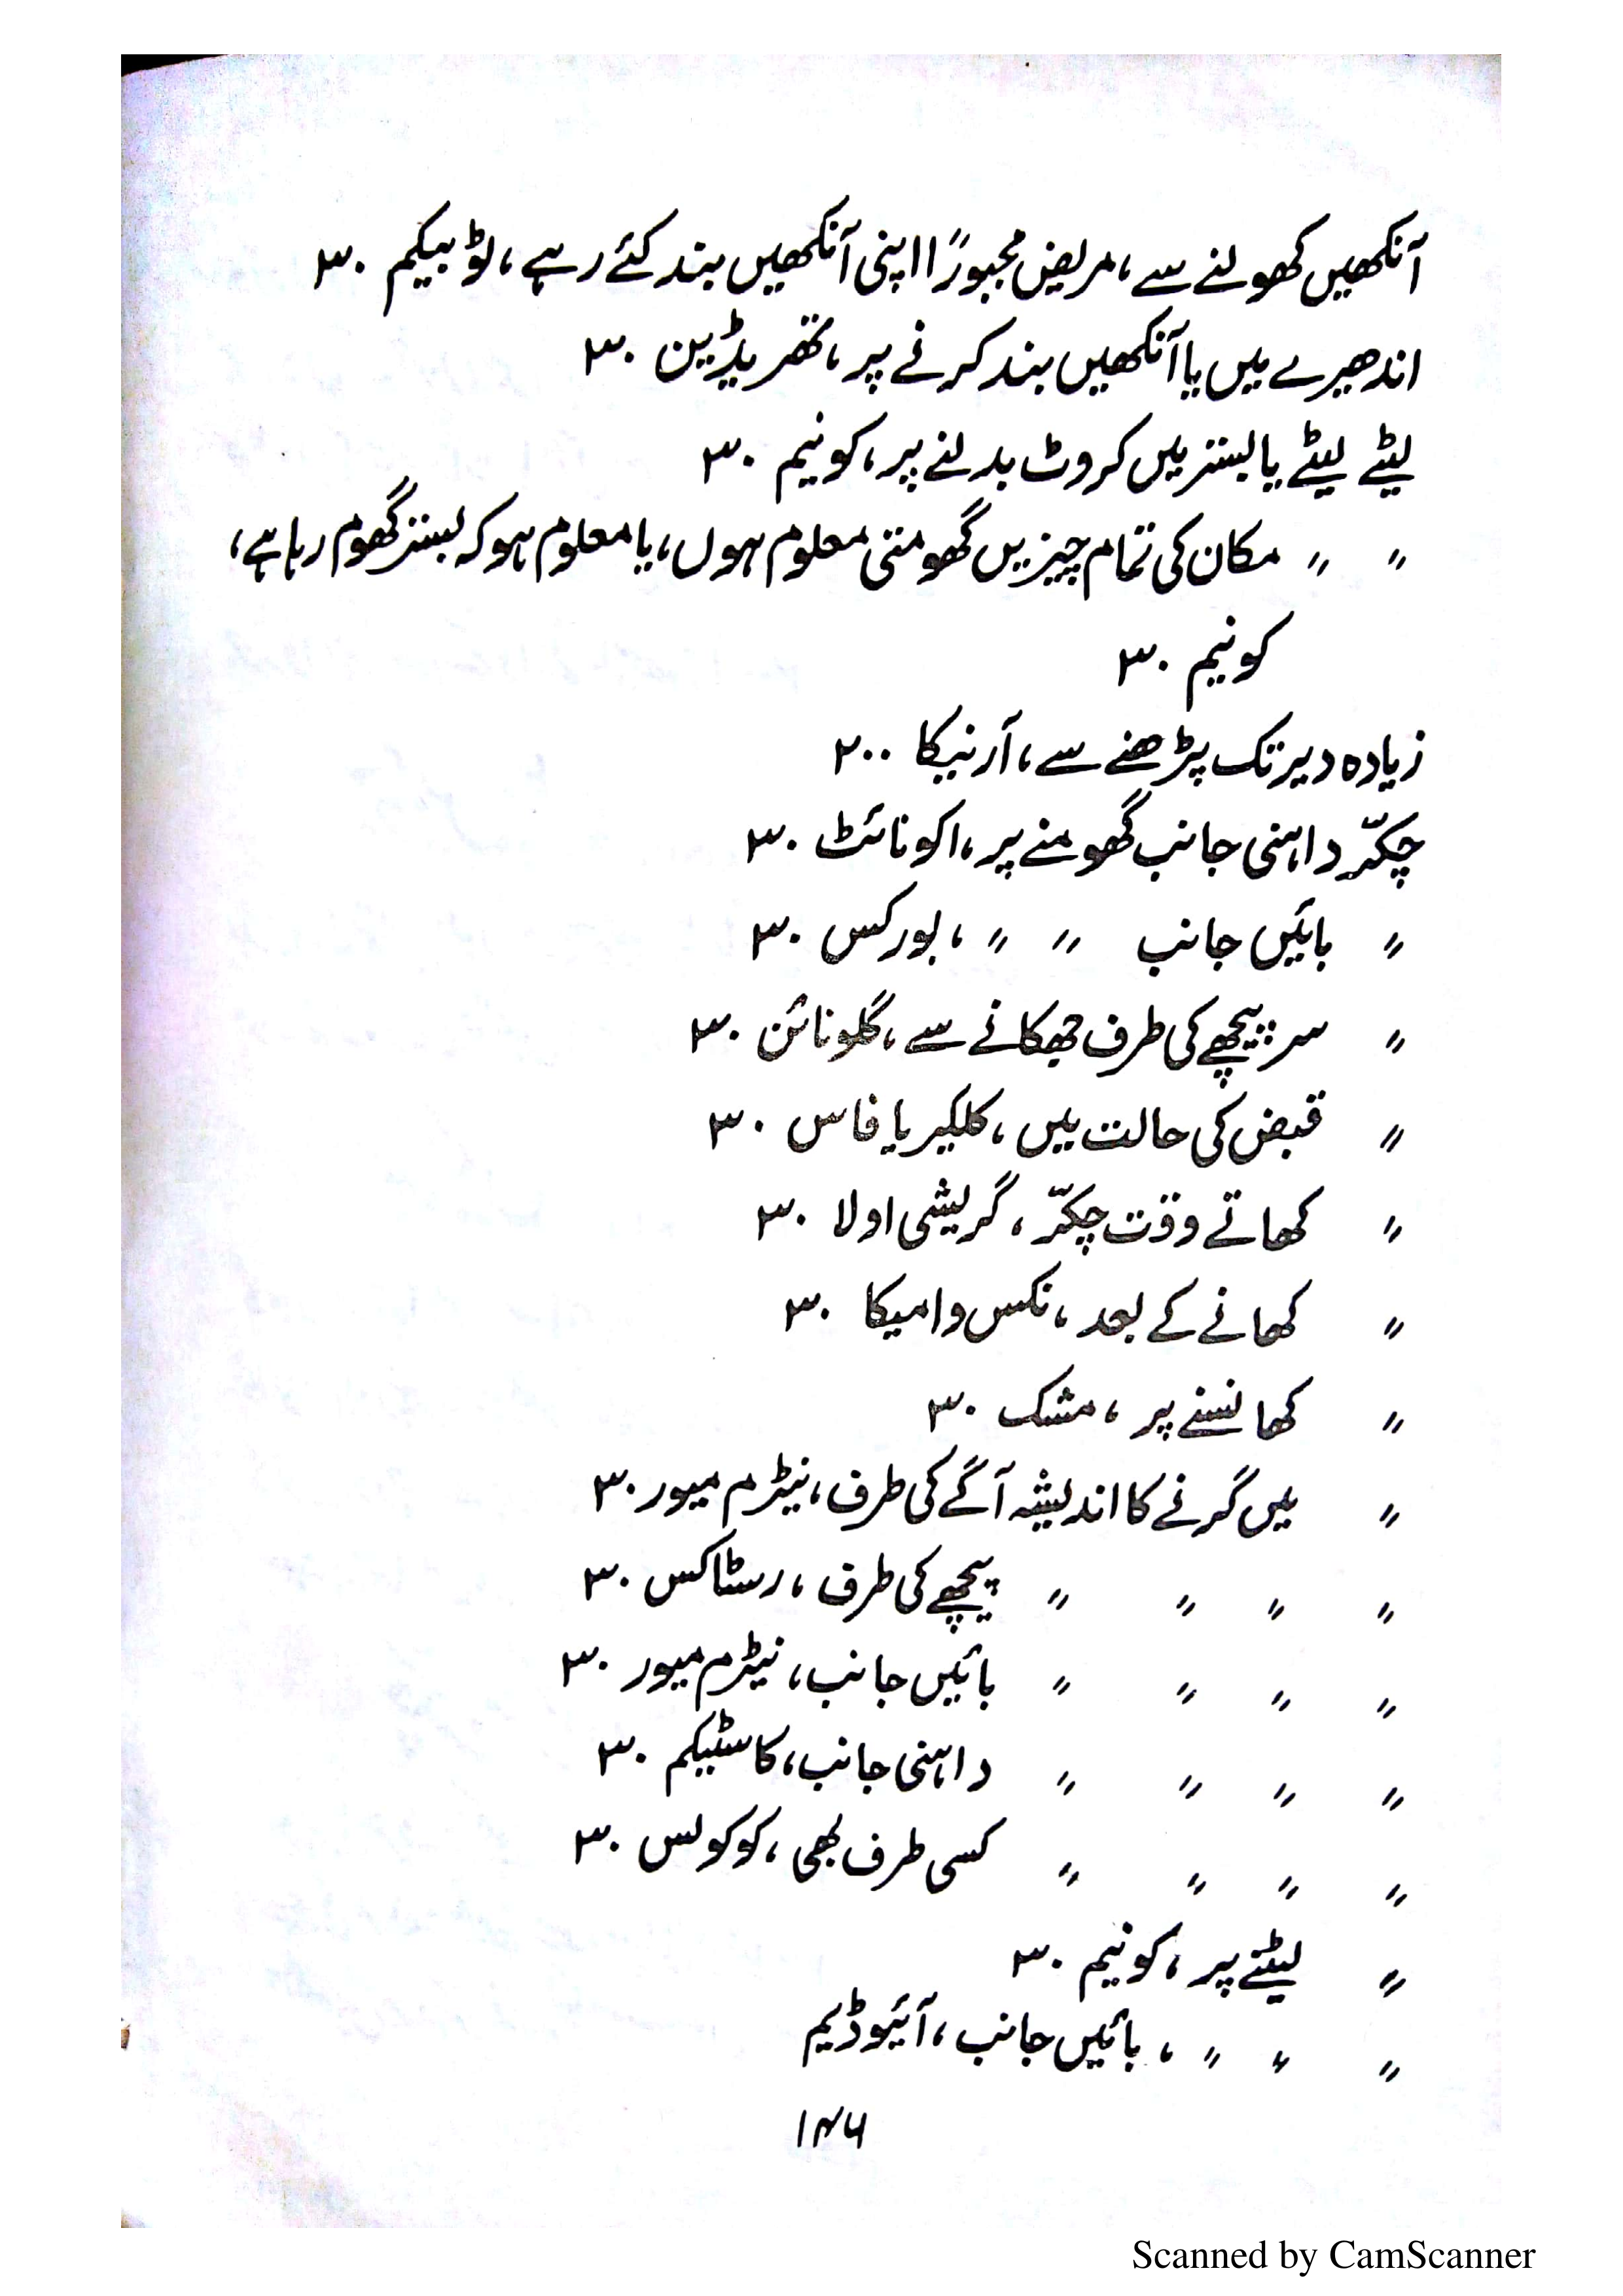 آنکھیں کھولنے سے، مریض مجبورًا اپنی آنکھیں بند کئے رہے، لوٹبیکم ۳۰
اندھیرے میں یا آنکھیں بند کرنے پر، تھریڈین ۳۰
لیٹے لیٹے یا بستر میں کروٹ بدلنے پر، کونیم ۳۰
〃 〃 مکان کی تمام چیزیں گھومتی معلوم ہوں، یا معلوم ہو کہ بستر گھوم رہا ہے،
کونیم ۳۰
زیادہ دیر تک پڑھنے سے، آرنیکا ۲۰۰
چکّر داہنی جانب گھومنے پر، اکونائٹ ۳۰
〃 بائیں جانب 〃 〃 ، بورکس ۳۰
〃 سر پیچھے کی طرف جھکانے سے، گلونائن ۳۰
〃 قبض کی حالت میں، کلکیریا فاس ۳۰
〃 کھاتے وقت چکّر، گریشی اولا ۳۰
〃 کھانے کے بعد، نکس وامیکا ۳۰
〃 کھانسنے پر، مشک ۳۰
〃 میں گرنے کا اندیشہ آگے کی طرف، نیٹرم میور ۳۰
〃 〃 〃 〃 پیچھے کی طرف، رسٹاکس ۳۰
〃 〃 〃 〃 بائیں جانب، نیٹرم میور ۳۰
〃 〃 〃 〃 داہنی جانب، کاسٹیکم ۳۰
〃 〃 〃 〃 کسی طرف بھی، کوکولس ۳۰
〃 لیٹنے پر، کونیم ۳۰
〃 〃 〃 ، بائیں جانب، آئیوڈیم
۱۴۶
Scanned by CamScanner